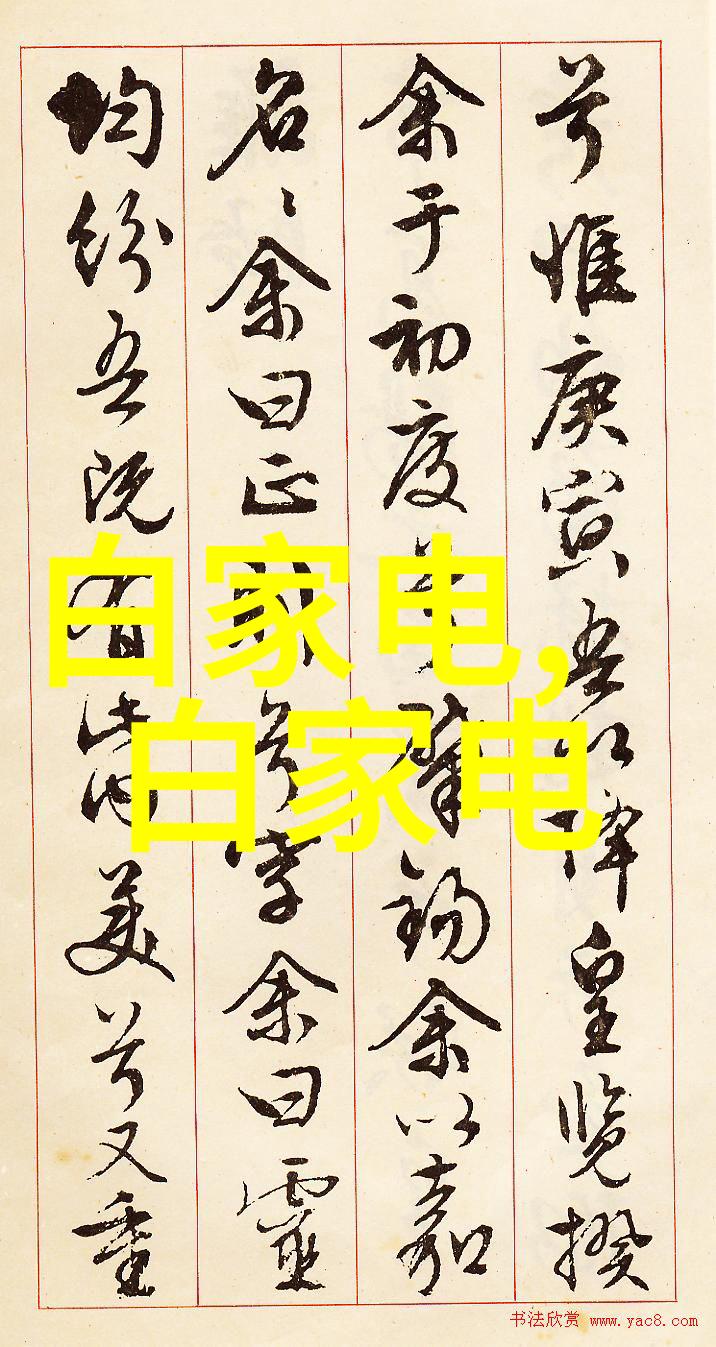 兮惟庚寅吾以降皇覽揆
余于初度兮肇錫余以嘉
名〻余曰正則兮字余曰靈
均紛吾既有此内美兮又重
白家电,
白家电
书法欣赏 www.yac8.com